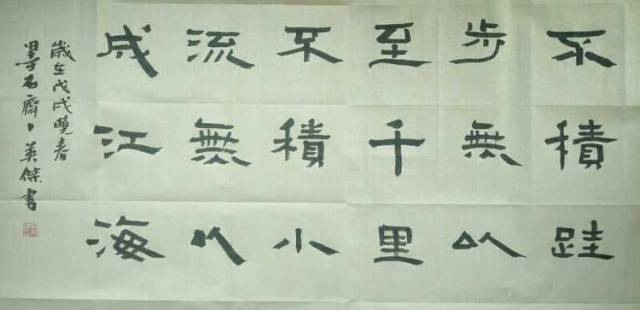 不積跬
步無以
至千里
不積小
流無以
成江海
歲在戊戌春
墨石齋卜英傑書